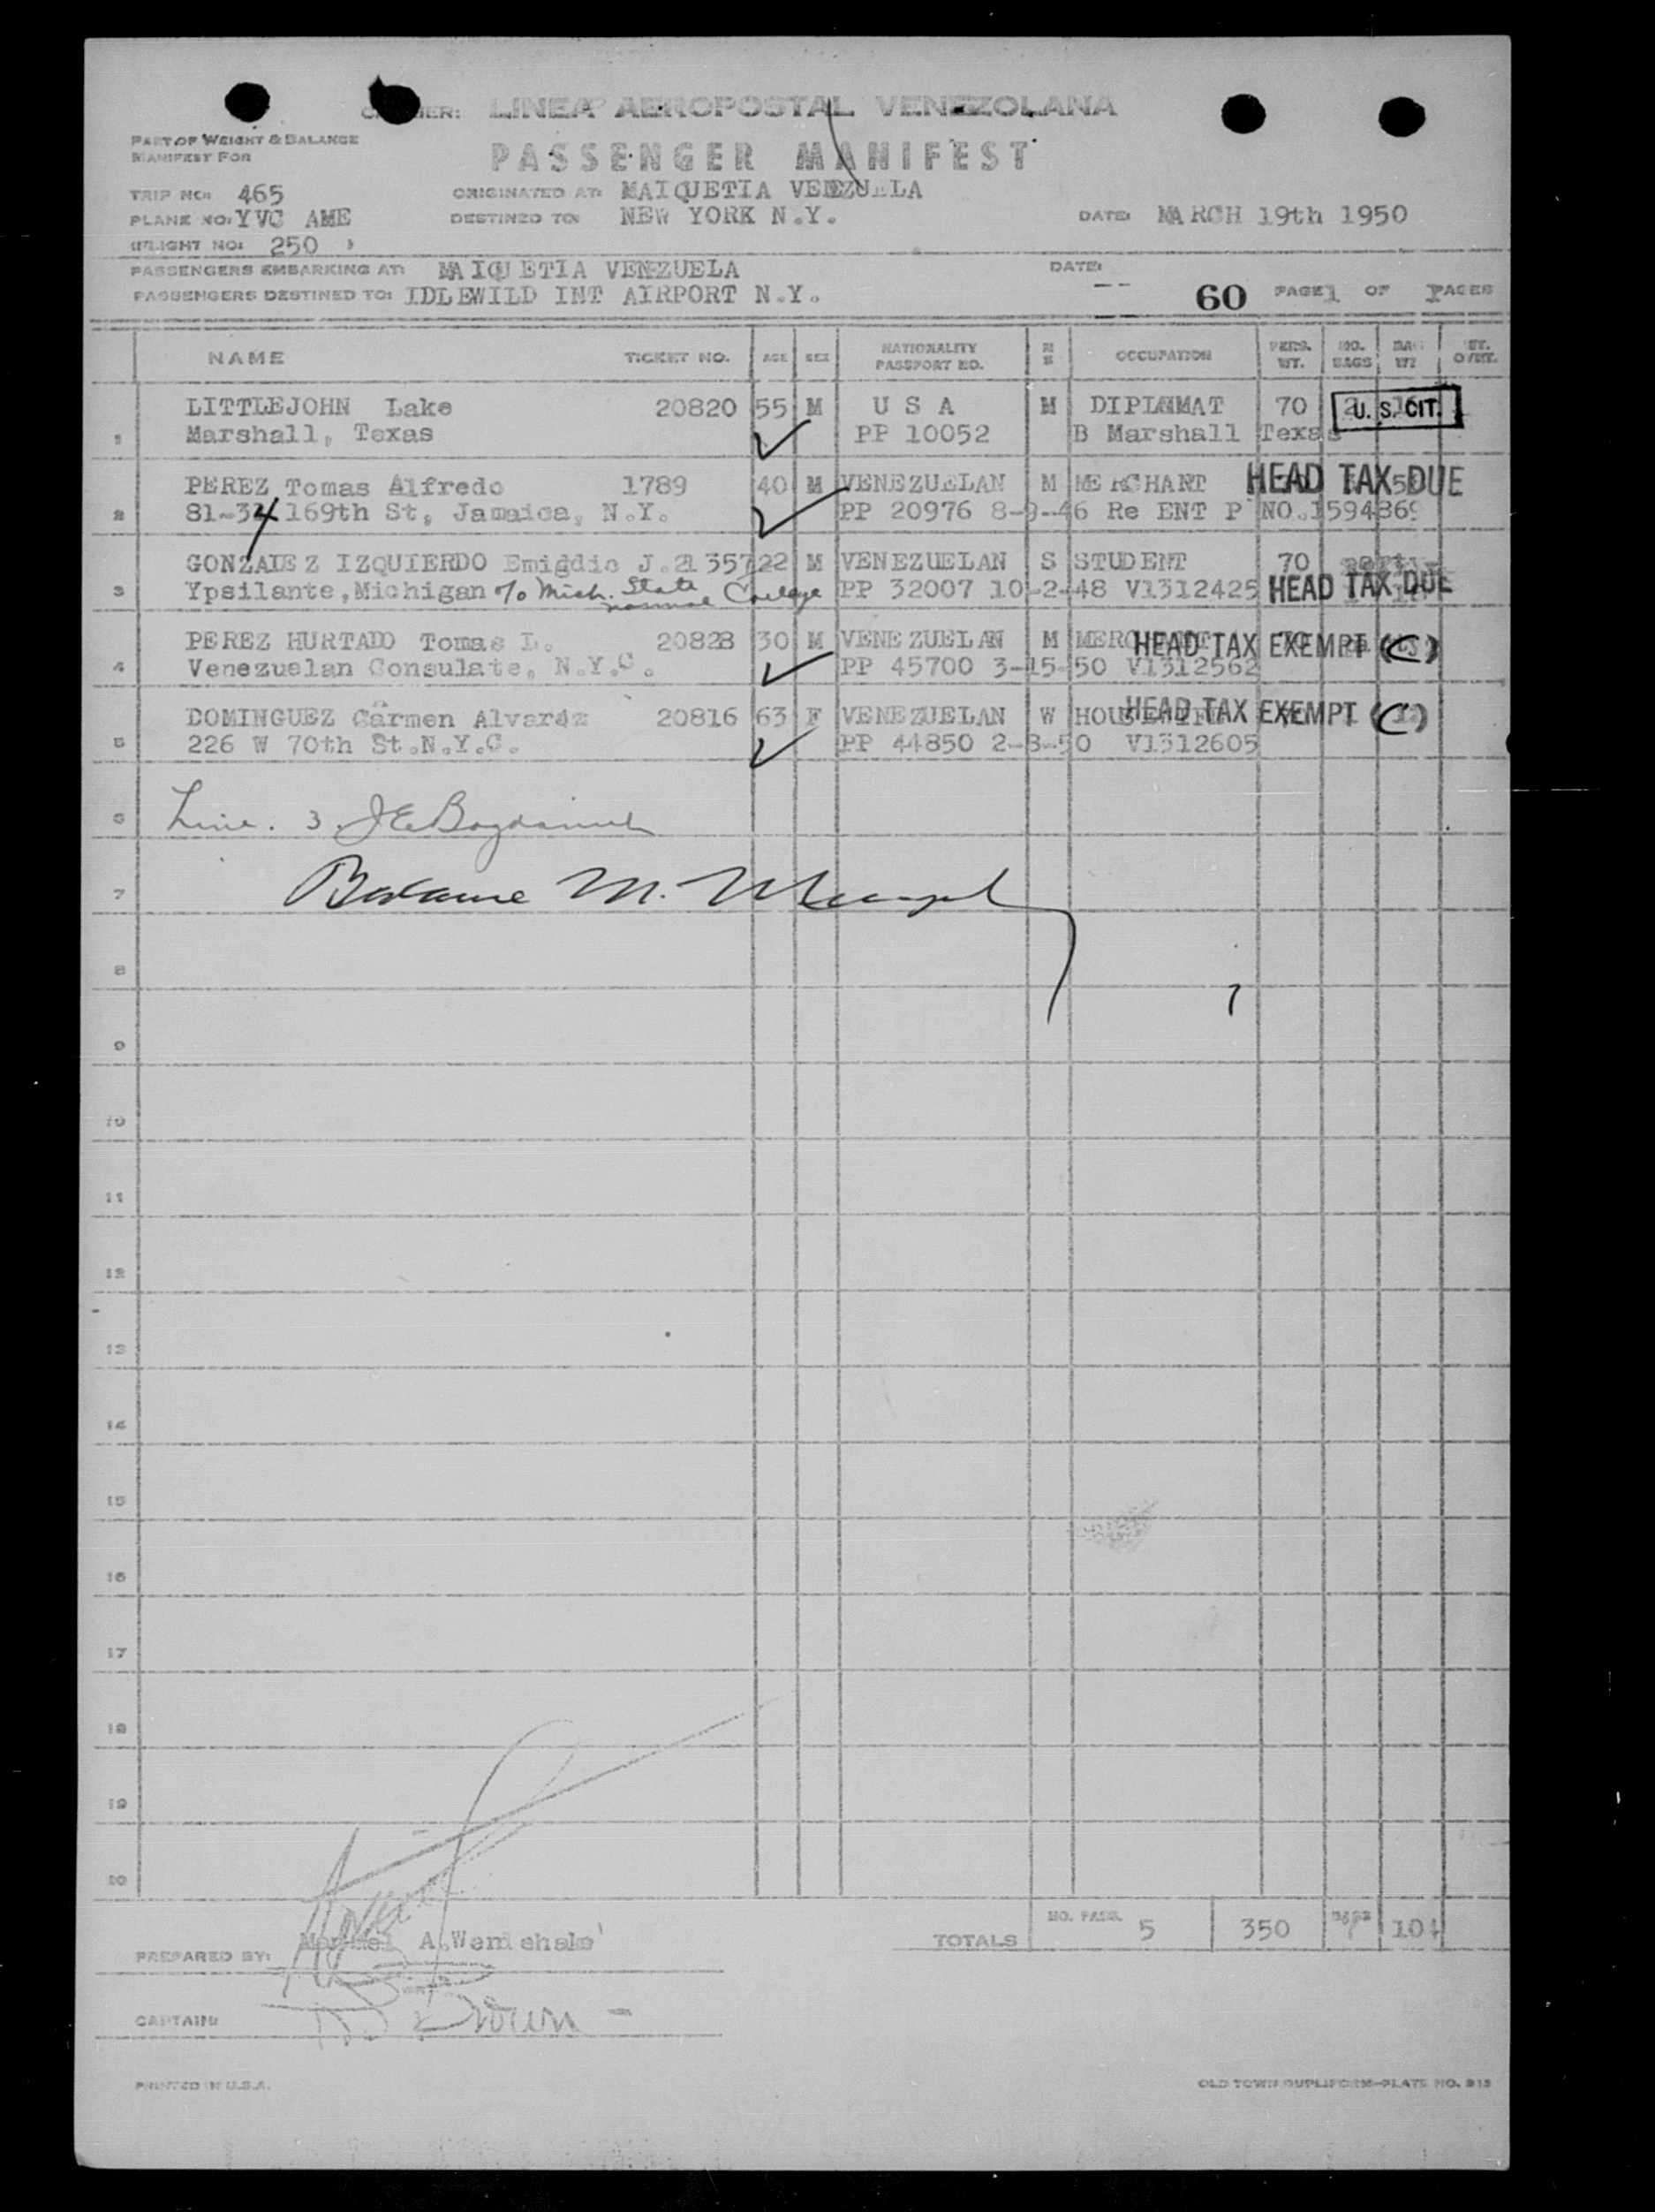 LINEA AEROPOSTAL VENEZOLANA
PART OF WEIGHT & BALANCE
MANIFEST FOR
PASSENGER MANIFEST
TRIP NO: 465 ORIGINATED AT: MAIQUETIA VENEZUELA
PLANE NO: YVC AME DESTINED TO: NEW YORK N.Y. DATE: MARCH 19th 1950
FLIGHT NO: 250
PASSENGERS EMBARKING AT: MAIQUETIA VENEZUELA DATE: --
PASSENGERS DESTINED TO: IDLEWILD INT AIRPORT N.Y. 60 PAGE 1 OF PAGES
NAME TICKET NO. AGE SEX NATIONALITY PASSPORT NO. M S OCCUPATION PERS. WT. NO. BAGS BAG WT
LITTLEJOHN Lake 20820 55 M U S A M DIPLOMAT 70 2 U. S. CIT.
1 Marshall, Texas PP 10052 B Marshall Texas
PEREZ Tomas Alfredo 1789 40 M VENEZUELAN M MERCHANT HEAD TAX DUE
2 81-34 169th St, Jamaica, N.Y. PP 20976 8-9-46 Re ENT P NO.1594869
GONZALEZ IZQUIERDO Emigdio J. 21357 22 M VENEZUELAN S STUDENT 70
3 Ypsilante, Michigan % Mich. State normal College PP 32007 10-2-48 V1312425 HEAD TAX DUE
PEREZ HURTADO Tomas L. 20828 30 M VENEZUELAN M MERCHANT HEAD TAX EXEMPT (C)
4 Venezuelan Consulate, N.Y.C. PP 45700 3-15-50 V1312562
DOMINGUEZ Carmen Alvarez 20816 63 F VENEZUELAN W HOUSEWIFE HEAD TAX EXEMPT (C)
5 226 W 70th St.N.Y.C. PP 44850 2-8-50 V1312605
6 Line. 3
7 Balance M.
8
9
10
11
12
13
14
15
16
17
18
19
20
TOTALS NO. PASS. 5 350 BAGS 7 104
PREPARED BY: A.
CAPTAIN: Brown
PRINTED IN U.S.A. OLD TOWN DUPLIFORM-PLATE NO. 813